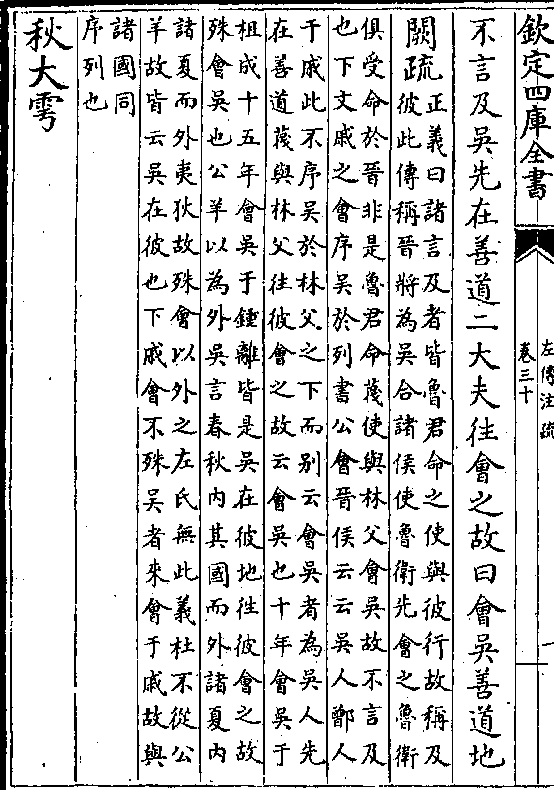 欽定四庫全書
左傳注疏
卷三十
一
不言及吳先在善道二大夫往會之故曰會吳善道地
闕疏正義曰諸言及者皆魯君命之使與彼行故稱及
彼此傳稱晉將為吳合諸侯使魯衛先會之魯衛
俱受命於晉非是魯君命蔑使與林父會吳故不言及
也下文戚之會序吳於列書公會晉侯云云吳人鄫人
于戚此不序吳於林父之下而别云會吳者為吳人先
在善道蔑與林父往彼會之故云會吳也十年會吳于
柤成十五年會吳于鍾離皆是吳在彼地往彼會之故
殊會吳也公羊以為外吳言春秋內其國而外諸夏內
諸夏而外夷狄故殊會以外之左氏無此義杜不從公
羊故皆云吳在彼也下戚會不殊吳者來會于戚故與
諸國同
序列也
秋大雩